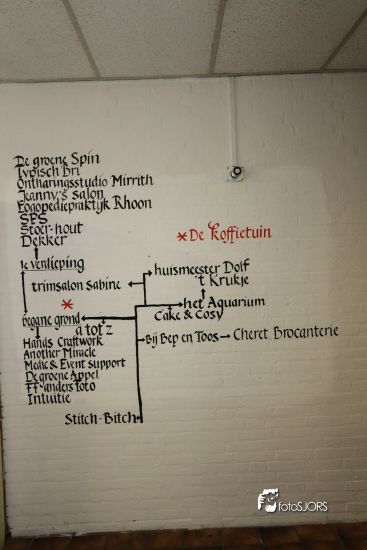 De groene Spin
Typisch Bri
Ontharingsstudio Mirrith
Jeanny's salon
Logopediepraktijk Rhoon
SPS
Stoer-hout
Dekker
*De Koffietuin
1e verdieping
huismeester Dolf
't Krukje
trimsalon Sabine
*
het Aquarium
Cake & Cosy
begane grond
a tot z
Bij Bep en Toos
Cheret Brocanterie
Hands Craftwork
Another Miracle
Medic & Event support
De groene Appel
FF anders foto
Intuitie
Stitch-Bitch
fotoSJORS